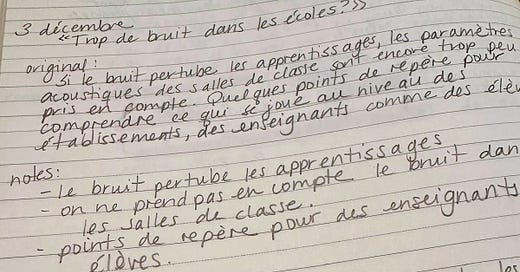 3 décembre
"Trop de bruit dans les écoles?>>
original:
Si le bruit pertube les apprentissages, les paramètres
acoustiques des salles de classe sont encore trop peu
pris en compte. Quelques points de repère pour
comprendre ce qui se joue au niveau des
établissements, des enseignants comme des élèv
notes:
- le bruit pertube les apprentissages
- on ne prend pas en compte le bruit dan
les salles de classe.
- points de repère pour des enseignants
élèves.
les